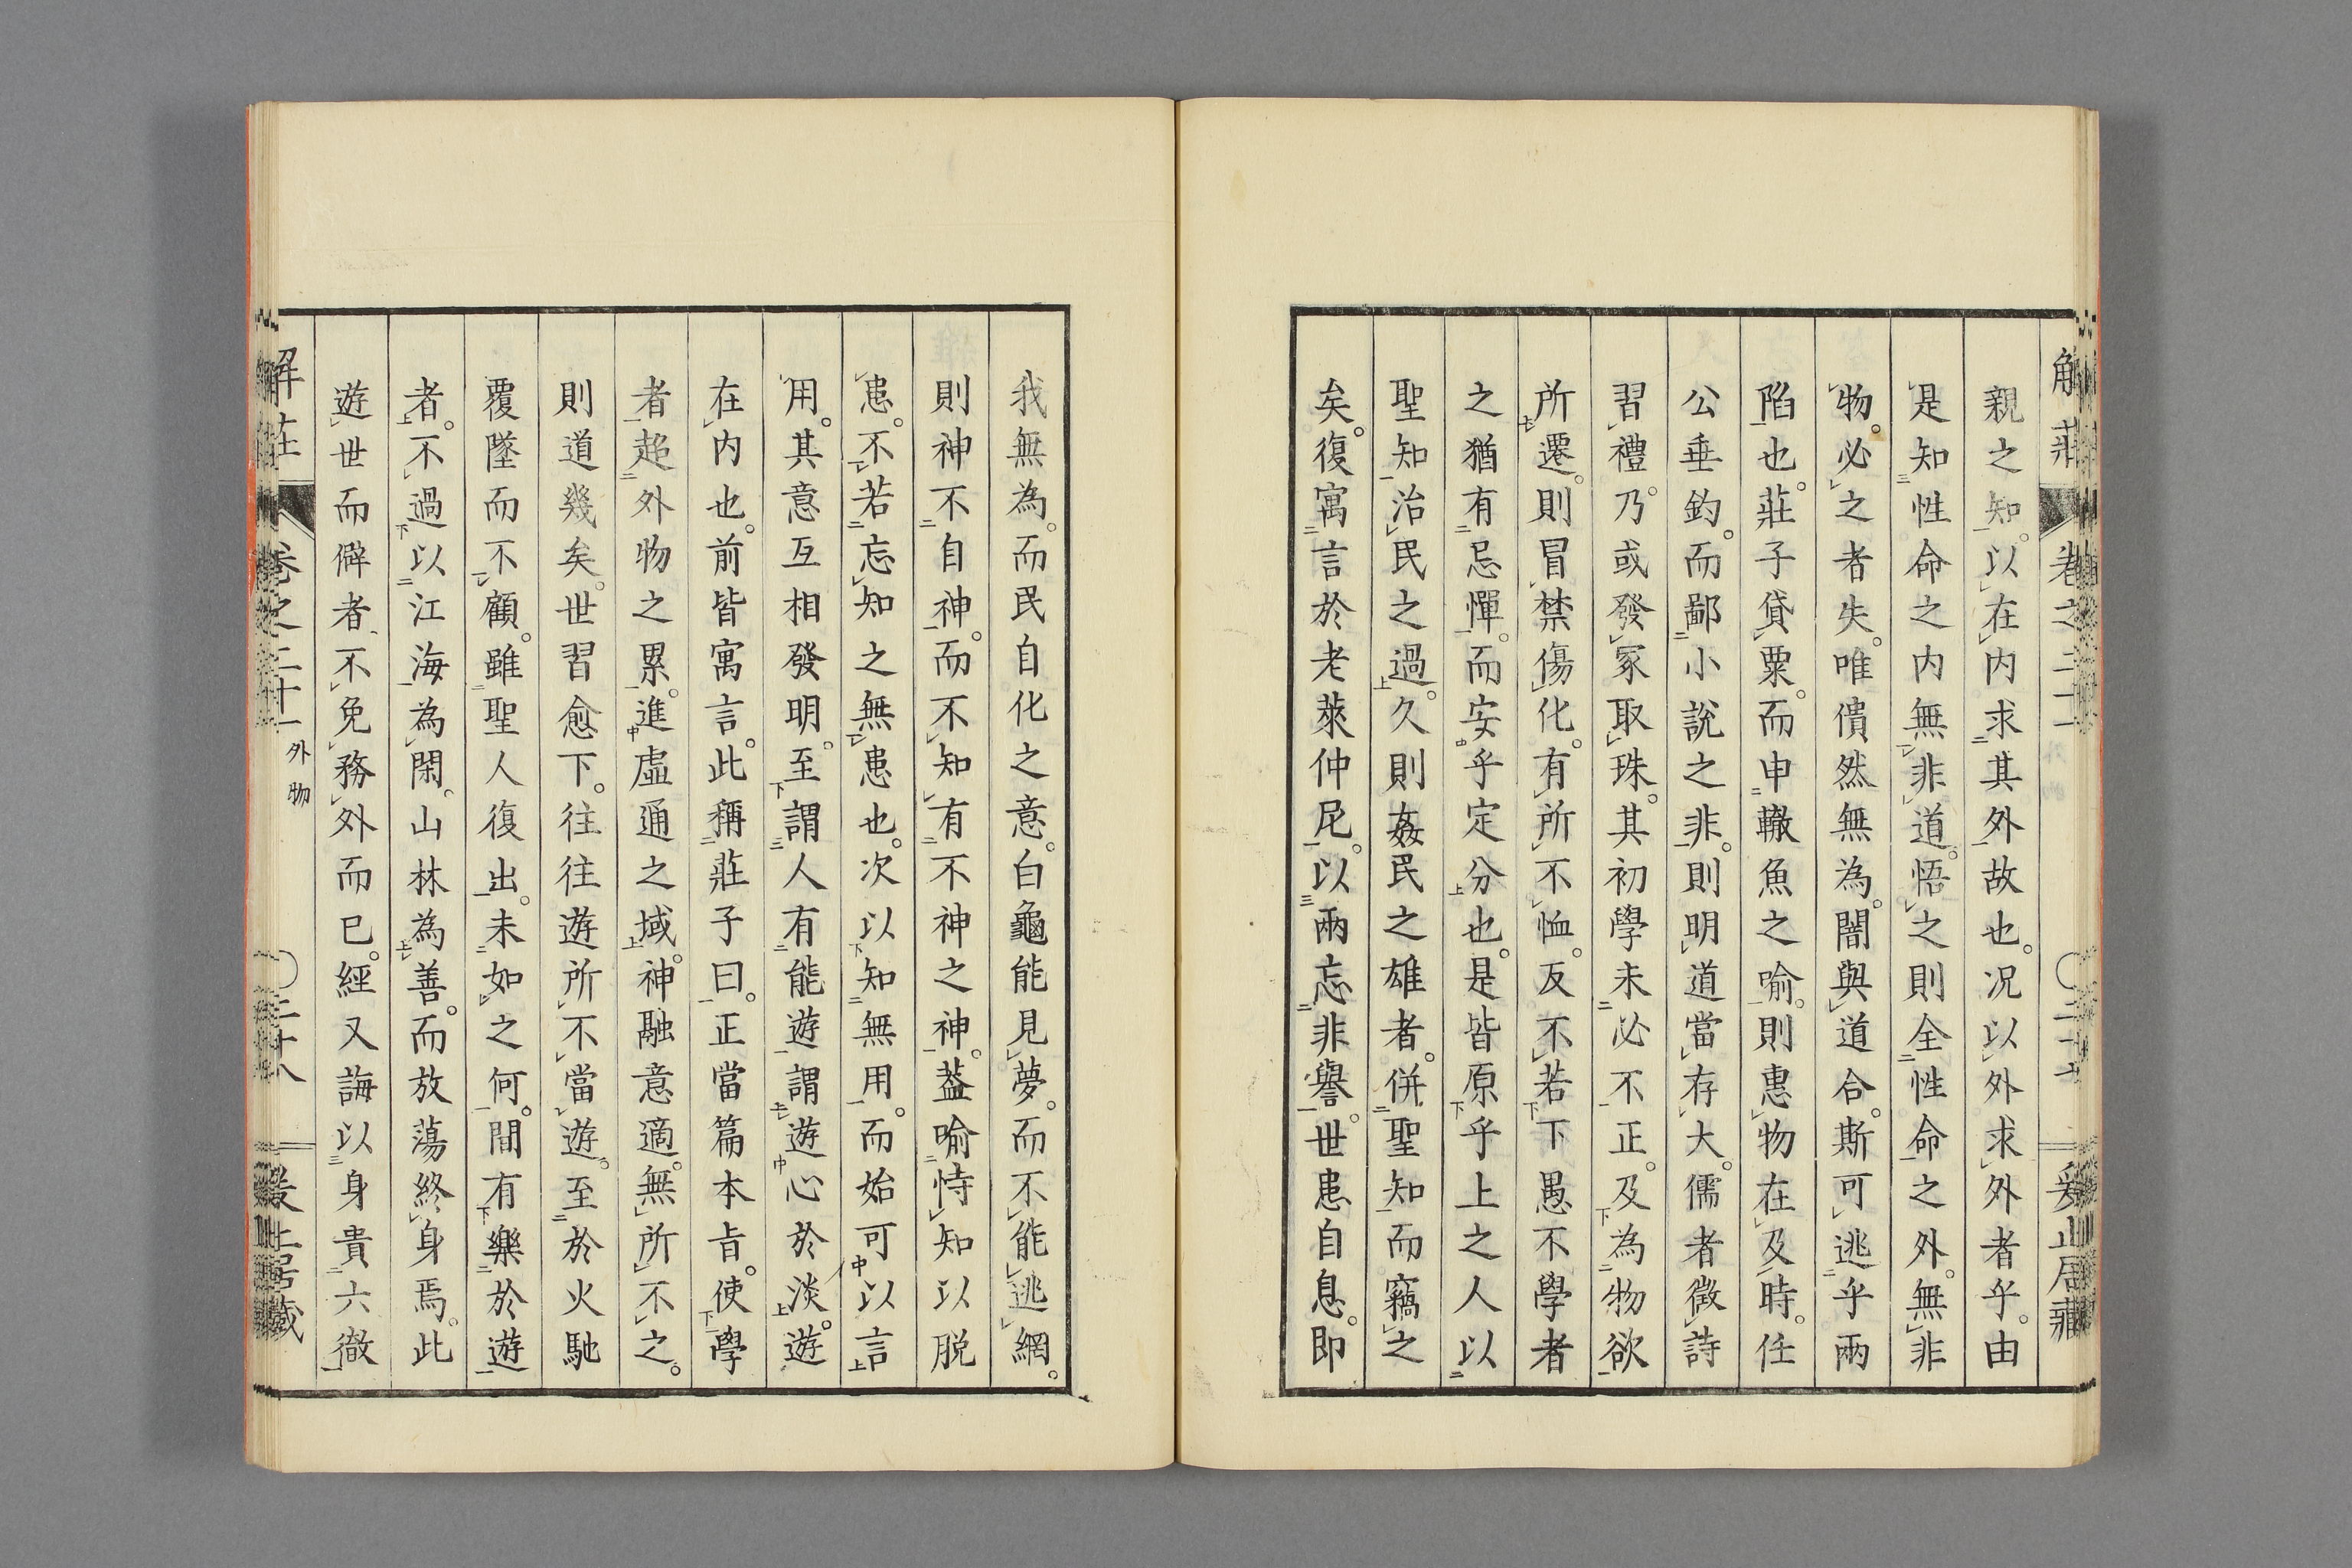 親之知。以在内求其外故也。况以外求外者乎。由
是知性命之内無非道。悟之則全性命之外。無非
物。必之者失。唯僓然無為。闇與道合。斯可逃乎兩
陷也。莊子貸粟。而申轍魚之喻。則惠物在及時。任
公垂釣。而鄙小說之非。則明道當存大。儒者徵詩
習禮。乃或發冢取珠。其初學未必不正。及為物欲
所遷。則冒禁傷化。有所不恤。反不若下愚不學者
之猶有忌憚。而安乎定分也。是皆原乎上之人以
聖知治民之過。久則姦民之雄者。併聖知而竊之
矣。復寓言於老萊仲尼。以兩忘非譽。世患自息。即
我無為。而民自化之意。白龜能見夢。而不能逃網。
則神不自神。而不知有不神之神。葢喻恃知以脱
患。不若忘知之無患也。次以知無用。而始可以言
用。其意互相發明。至謂人有能遊謂遊心於淡。遊
在内也。前皆寓言。此稱莊子曰。正當篇本旨。使學
者超外物之累。進虛通之域。神融意適。無所不之。
則道幾矣。世習愈下。往往遊所不當遊。至於火馳
覆墜而不顧。雖聖人復出。未如之何。間有樂於遊
者。不過以江海為閑。山林為善。而放蕩終身焉。此
遊世而僻者、不免務外而已。經又誨以身貴六徹
解莊 卷之二十一 外物 〇二十八